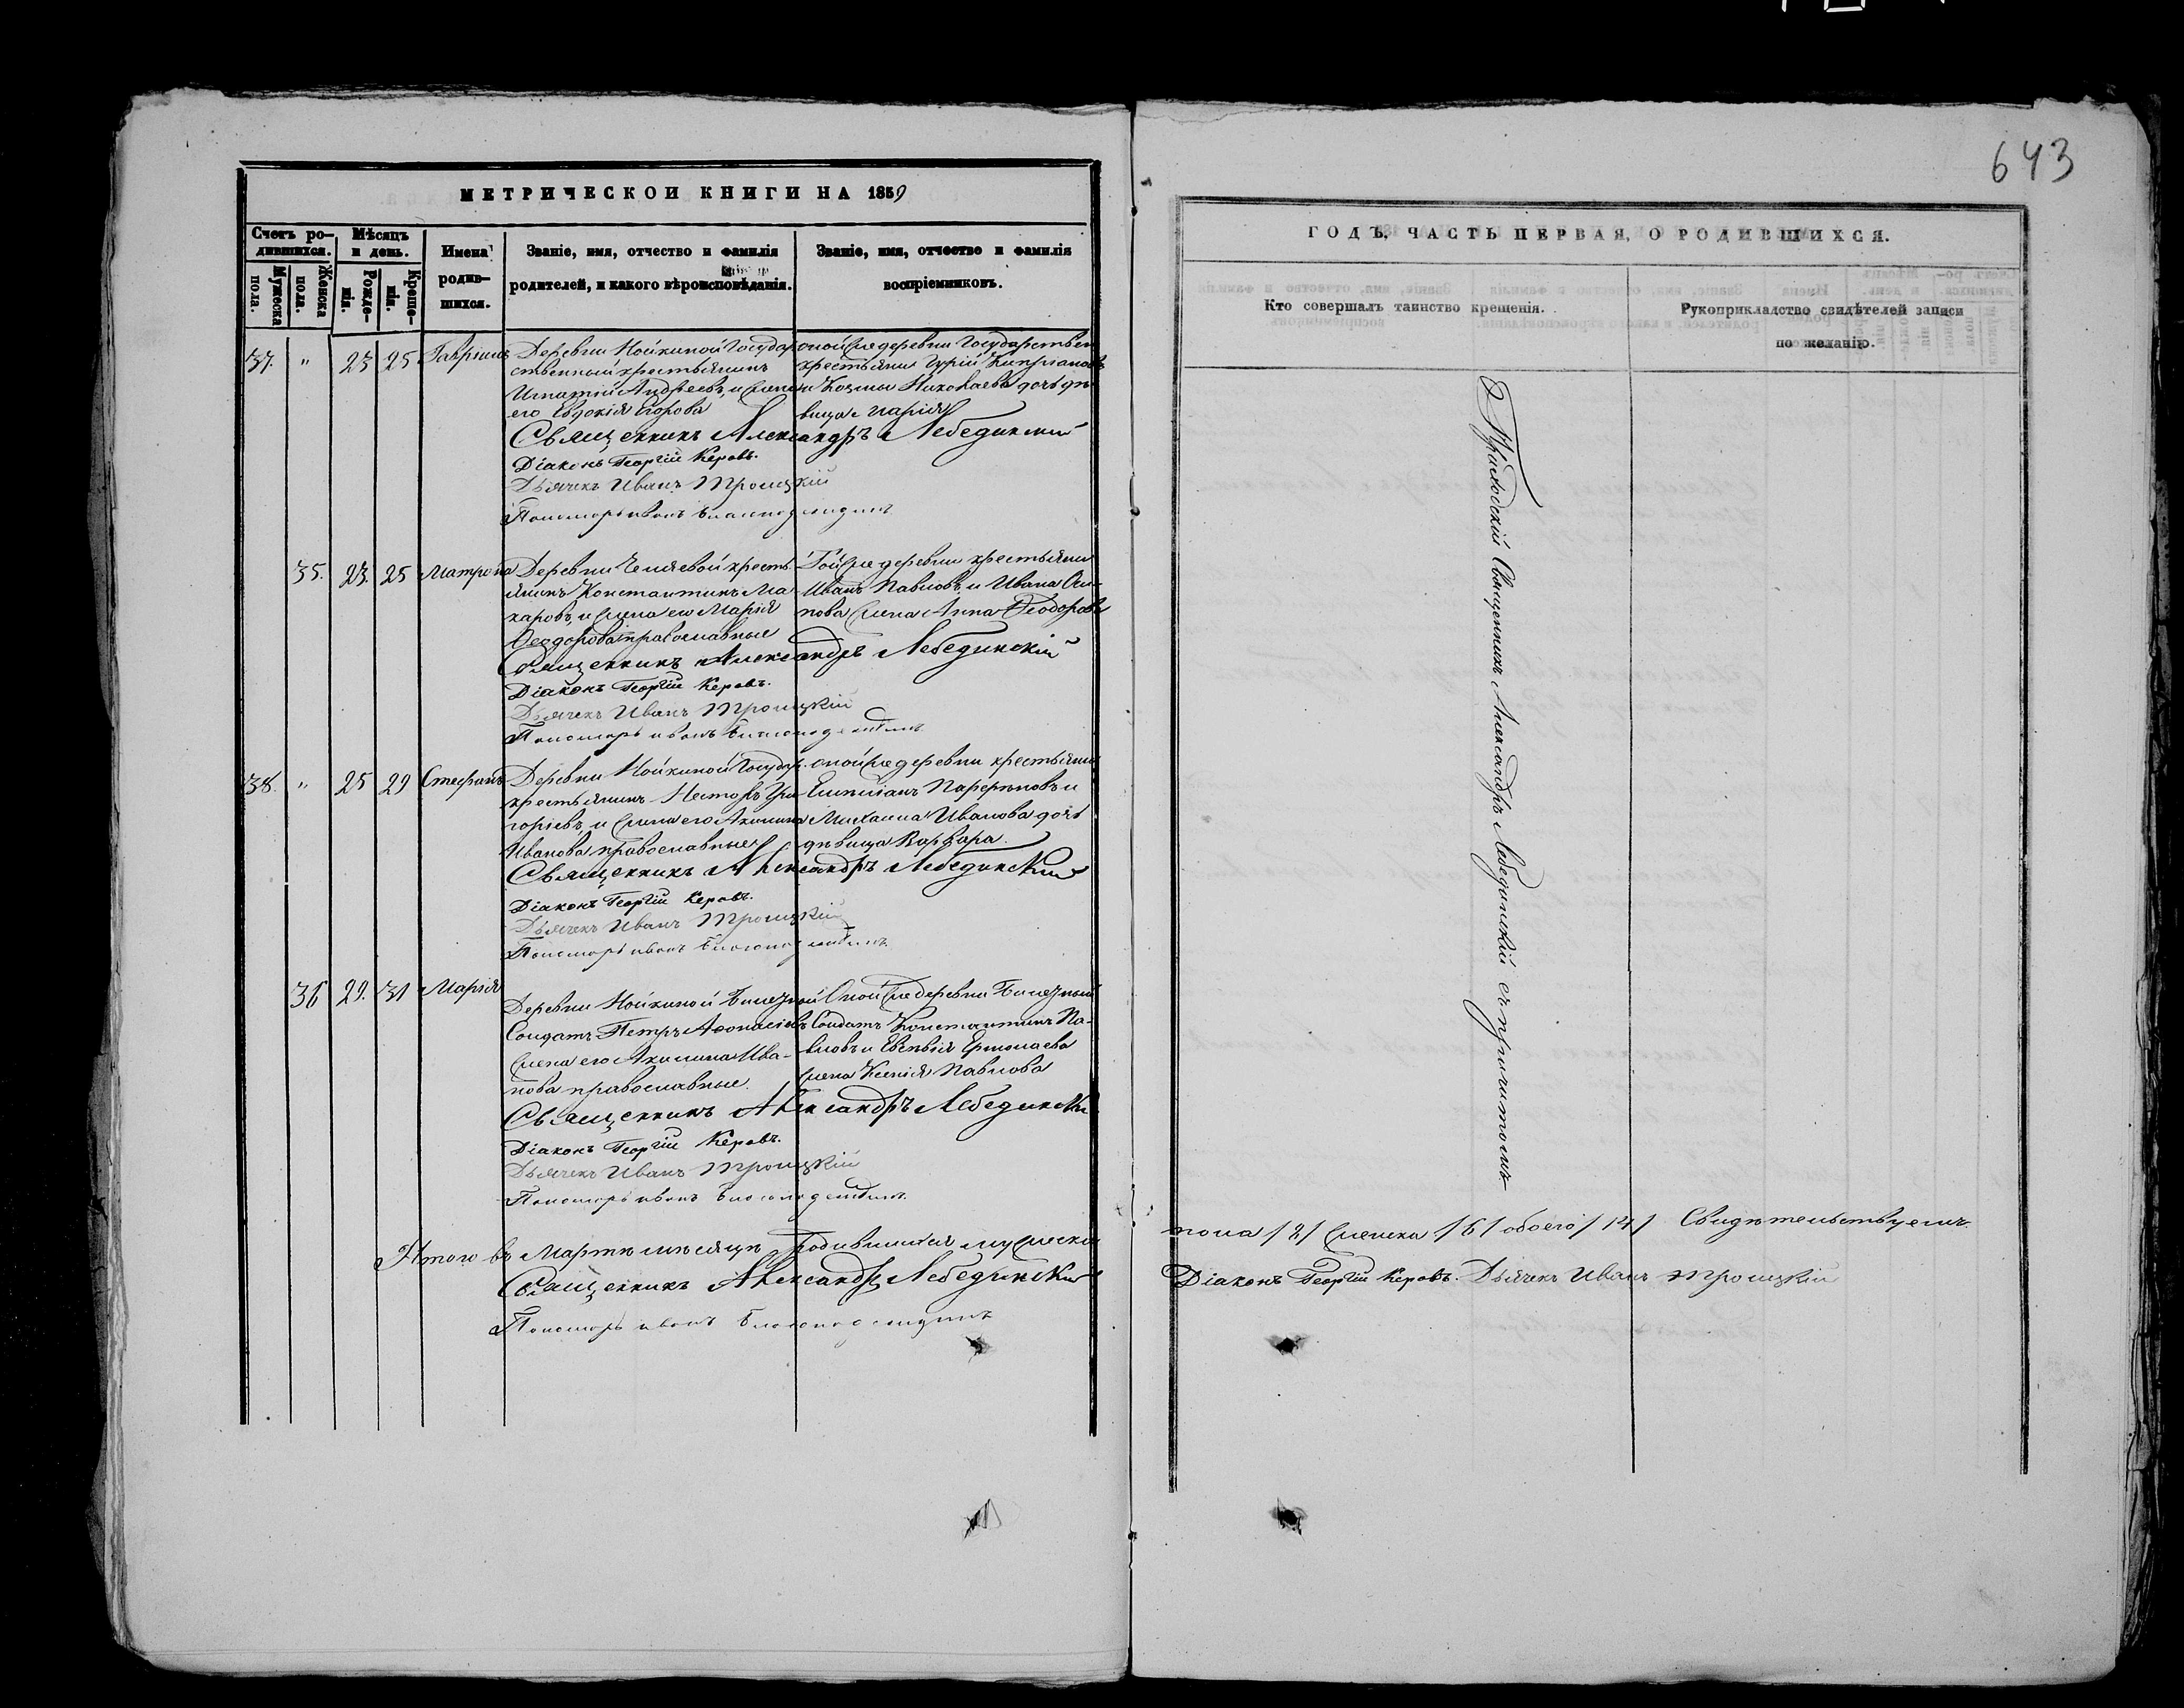 643
МЕТРИЧЕСКОЙ КНИГИ НА 1859
Счетъ ро-
дившихся.
Мѣсяцъ
и день.
Мужеска
пола.
Женска
пола.
Рожде-
нія.
Креще-
нія.
Имена
родив-
шихся.
Званіе, имя, отчество и фамилія
родителей, и какого вѣроисповѣданія.
Званіе, имя, отчество и фамилія
воспріемниковъ.
37. " 23 25 Гавріилъ
Деревни Нойкиной Государ-
ственный крестьянинъ
Игнатій Андреевъ, и жена
его Евдокія Егорова
оной же деревни Государствен
крестьянинъ Гурій Кипріановъ
и Козмы Николаева дочь дѣ-
вица Марія
Священникъ Александръ Лебединскій
Діаконъ Георгій Керовъ.
Дьячекъ Иванъ Троицкій
Пономарь
35. 23. 25 Матрона
Деревни крестья-
янинъ Константинъ Ма-
каровъ, и жена его Марія
Феодорова православные
Той же деревни крестьянинъ
Иванъ Павловъ, и Ивана Оси-
пова жена Анна Феодорова
Священникъ Александръ Лебединскій
Діаконъ Георгій Керовъ.
Дьячекъ Иванъ Троицкій
Пономарь
38. " 25 29 Стефанъ
Деревни Нойкиной Государ.
крестьянинъ Несторъ Гри
горіевъ, и жена его Акилина
Иванова православные
оной же деревни крестьянинъ
Емиліанъ Парфеновъ и
Михаила Иванова дочь
дѣвица Варвара.
Священникъ Александръ Лебединскій
Діаконъ Георгій Керовъ.
Дьячекъ Иванъ Троицкій
Пономарь
36 29. 31 Марія
Деревни Нойкиной Билетный
Солдатъ Петръ Афонасіевъ
жена его Акилина Ива-
нова православные.
Оной же деревни Билетный
Солдатъ Константинъ Па-
вловъ и Ермолаева
жена Ксенія Павлова
Священникъ Александръ Лебединскій
Діаконъ Георгій Керовъ.
Дьячекъ Иванъ Троицкій
Пономарь
Итого въ Мартѣ мѣсяцѣ родившихся мужеска
Священникъ Александръ Лебединскій
Пономарь
ГОДЪ, ЧАСТЬ ПЕРВАЯ, О РОДИВШИХСЯ.
Кто совершалъ таинство крещенія.
Рукоприкладство свидѣтелей записи
по желанію.
Приходскій Священникъ Александръ Лебединскій съ причтомъ
пола /8/ женска /6/ обоего /14/ Свидѣтельствуемъ.
Діаконъ Георгій Керовъ. Дьячекъ Иванъ Троицкій